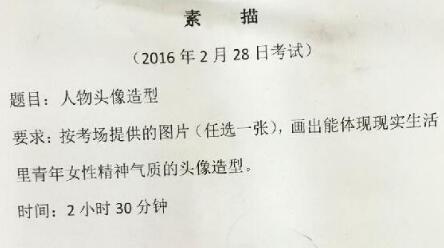 素 描
（2016 年 2 月 28 日考试）
题目：人物头像造型
要求：按考场提供的图片（任选一张），画出能体现现实生活
里青年女性精神气质的头像造型。
时间：2 小时 30 分钟